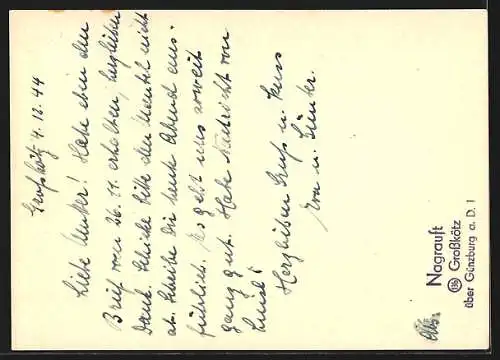 Großkötz 4.12.44
Liebe Mutter! Habe eben den
Brief vom 26.11 erhalten, herzlichen
Dank. Schicke bitte den Mantel nicht
ab. Schreibe Dir heute Abend aus-
führlich. Es geht uns soweit
ganz gut. Habe Nachricht von
Herzlichen Gruß u. Kuss
von u.
Nagrauft
Großkötz
über Günzburg a. D. 1